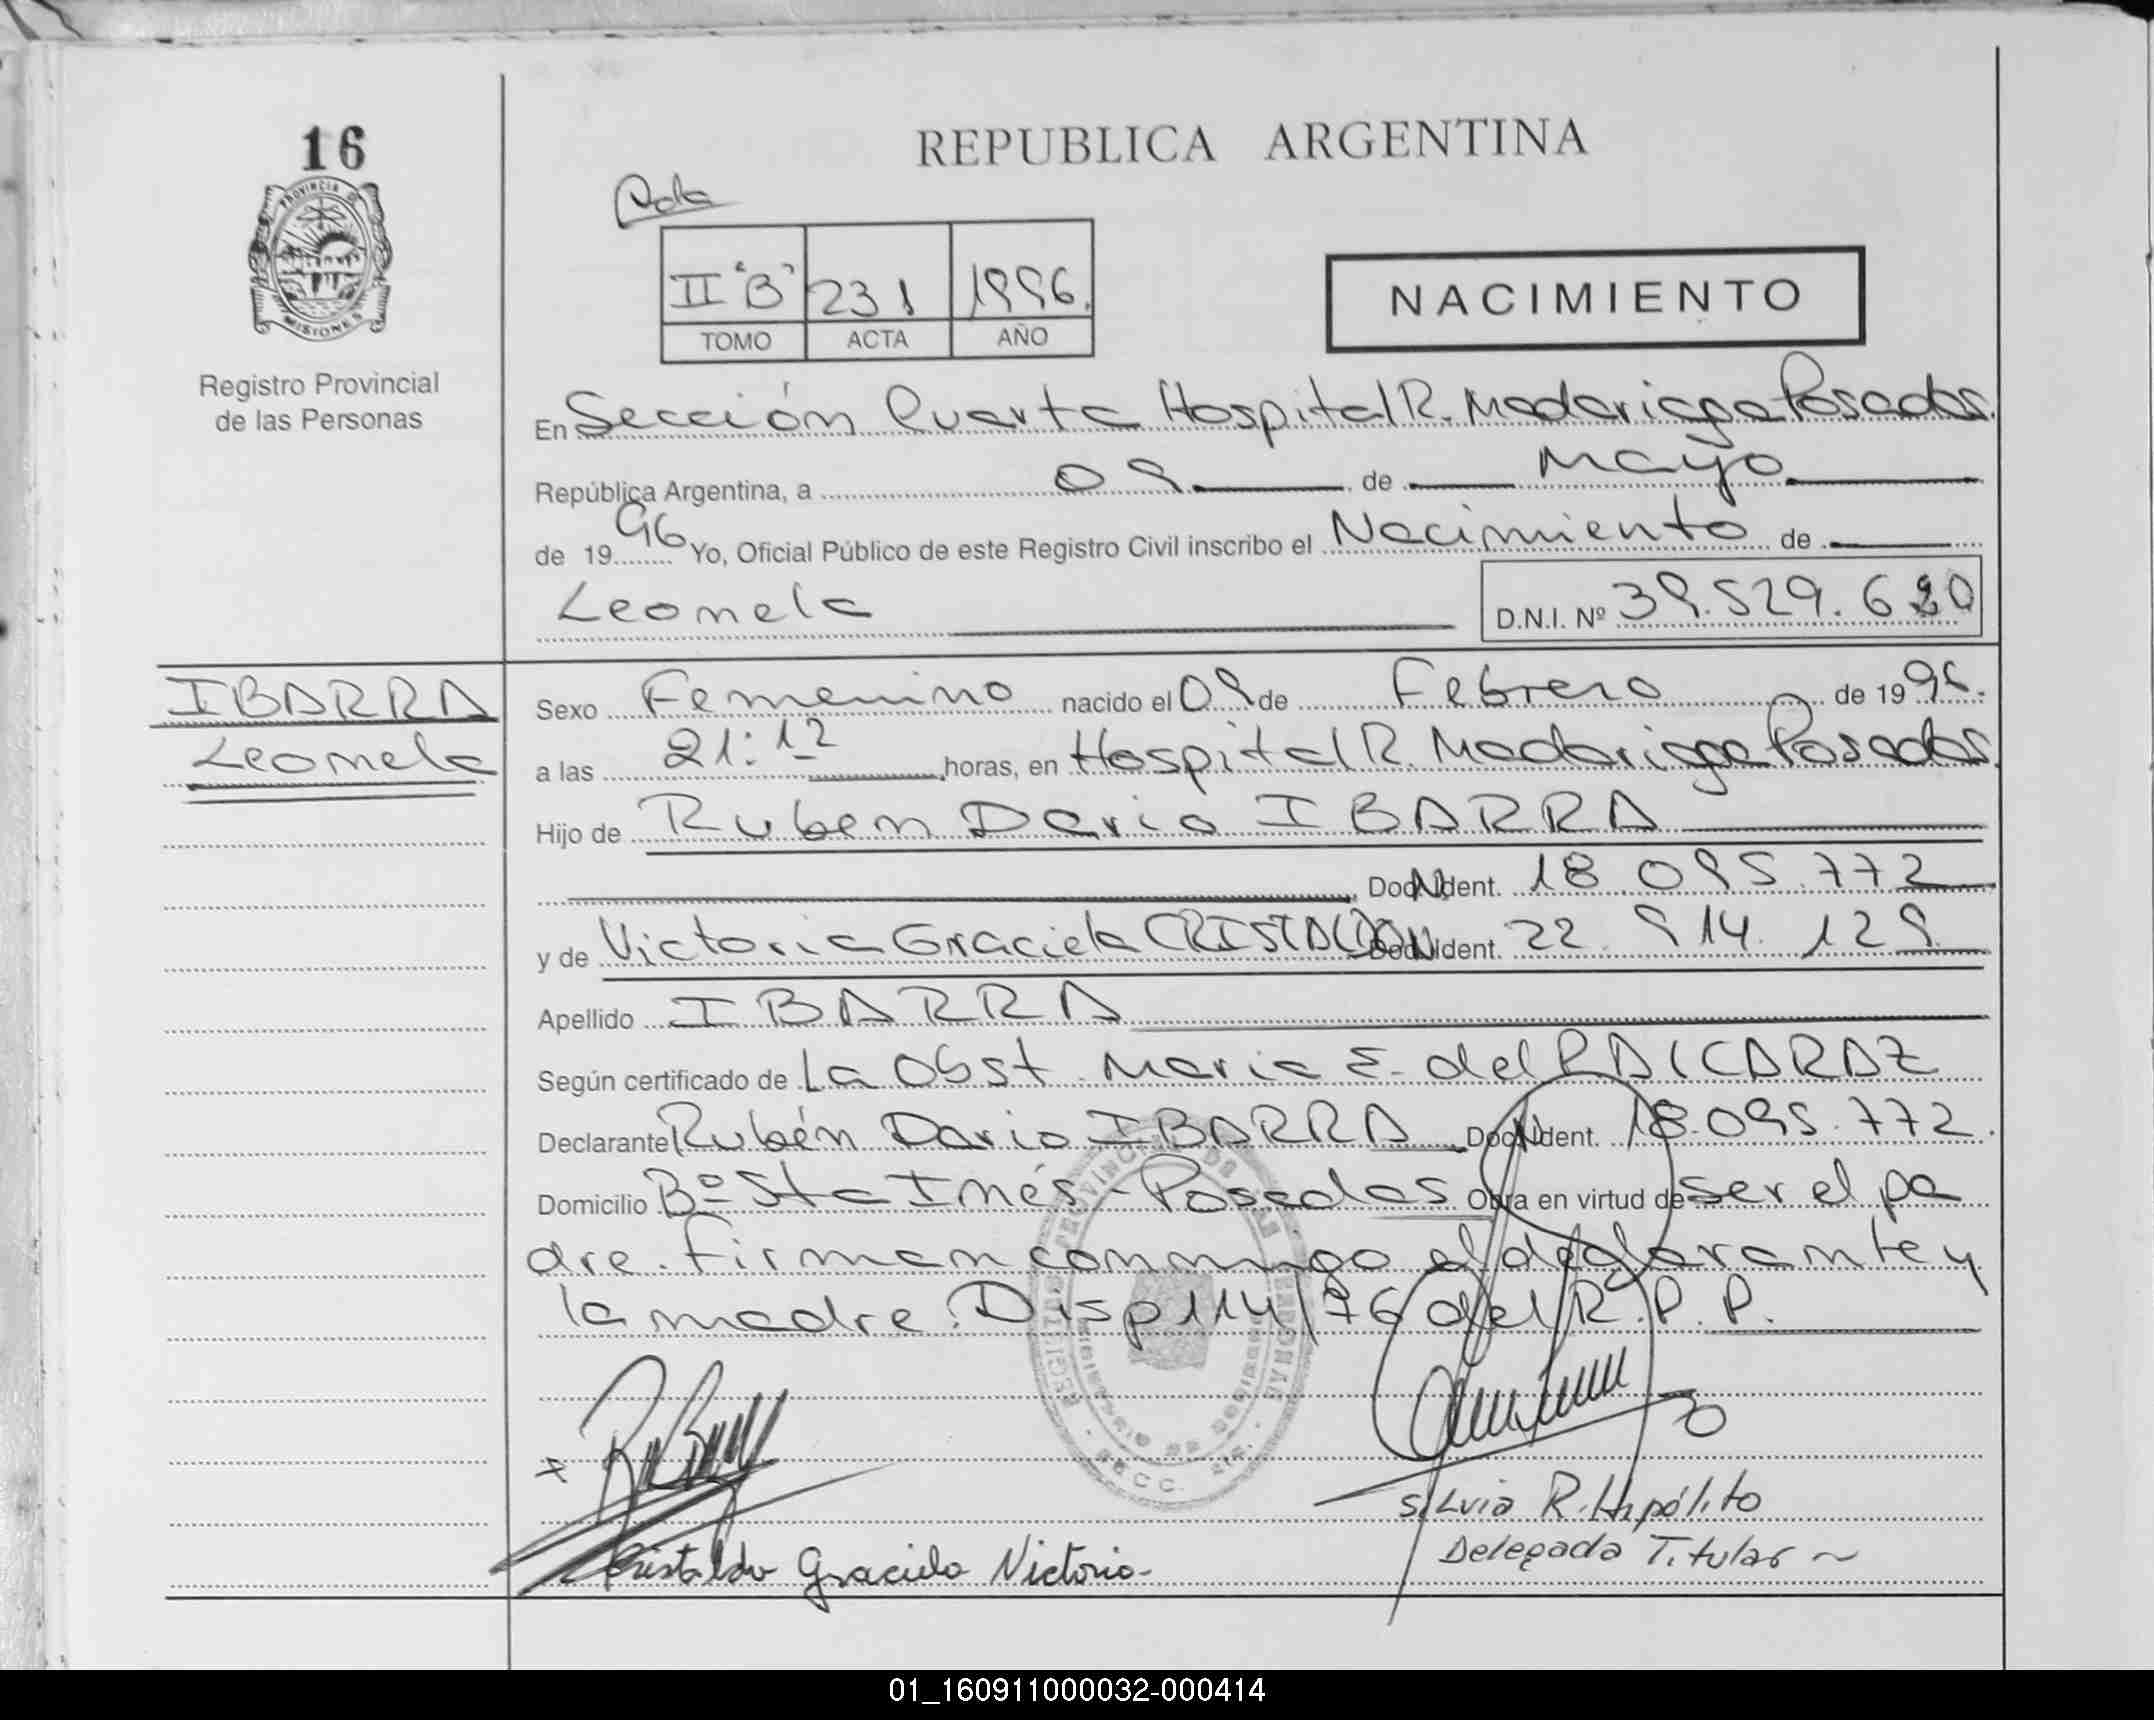 16
PROVINCIA DE
MISIONES
Registro Provincial
de las Personas
REPUBLICA ARGENTINA
Pda
II "B" 231 1996.
TOMO ACTA AÑO
NACIMIENTO
En Sección Cuarta Hospital R. Madariaga Posadas.
República Argentina, a 09 de Mayo
de 1996 Yo, Oficial Público de este Registro Civil inscribo el Nacimiento de
Leonela
D.N.I. Nº 39.529.620
IBARRA
Leonela
Sexo Femenino nacido el 09 de Febrero de 1996.
a las 21:12 horas, en Hospital R. Madariaga Posadas.
Hijo de Ruben Dario IBARRA
Doc. Ident. 18.095.772
y de Victoria Graciela CRISTALDO Doc. Ident. 22.914.129
Apellido IBARRA
Según certificado de La Obst. Maria E. del P. ALCARAZ
Declarante Rubén Dario IBARRA Doc. Ident. 18.095.772.
Domicilio Bº Sta Inés - Posadas Obra en virtud de ser el pa
dre. Firman conmigo el declarante y
la madre. Disp 114/76 del R.P.P.
Cristaldo Graciela Victoria
Silvia R. Hipólito
Delegada Titular
01_160911000032-000414